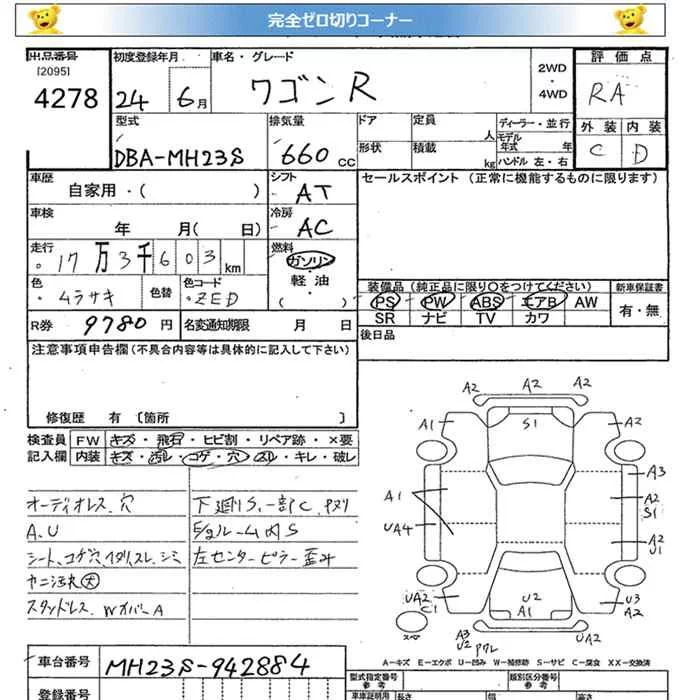 完全ゼロ切りコーナー
出品番号
[2095]
4278
初度登録年月
24年 6月
車名・グレード
ワゴンR
2WD
・
4WD
評価点
RA
外装 内装
C D
型式
DBA-MH23S
排気量
660 cc
ドア
定員
人
形状
積載
kg
ディーラー・並行
モデル
年式 年
ハンドル 左・右
車歴
自家用・( )
シフト
AT
セールスポイント (正常に機能するものに限ります)
車検
年 月( 日)
冷房
AC
走行
17万3千603km
燃料
ガソリン
・
軽油
・
( )
色
ムラサキ
色替
色コード
ZED
装備品 (純正品に限り〇をつけてください)
PS PW ABS エアB AW
SR ナビ TV カワ
新車保証書
有・無
R券 9780円
名変通知期限 月 日
後日品
注意事項申告欄(不具合内容等は具体的に記入して下さい)
修復歴 有 [箇所 ]
検査員
記入欄
FW キズ・飛石・ヒビ割・リペア跡・×要
内装 キズ・汚レ・コゲ・穴・スレ・キレ・破レ
オーディオレス、穴
A.U
シート、コゲ穴、イタミ、スレ、シミ
ヤニ汚れ大
スタッドレス、WオバーA
下廻りS、一部C
E/gルーム内S
左センターピラー歪み
A2
A2
A2
A1
S1
A2
A3
A1
A2
S1
UA4
A2
U1
UA2
C1
U2
A1
U3
A2
スペア
A3
U2
ワレ
UA2
A-キズ E-エクボ U-凹み W-補修跡 S-サビ C-腐食 XX-交換済
車台番号
MH23S-942884
登録番号
型式指定番号
参考
類別区分番号
参考
車車証明用
長さ
幅
高